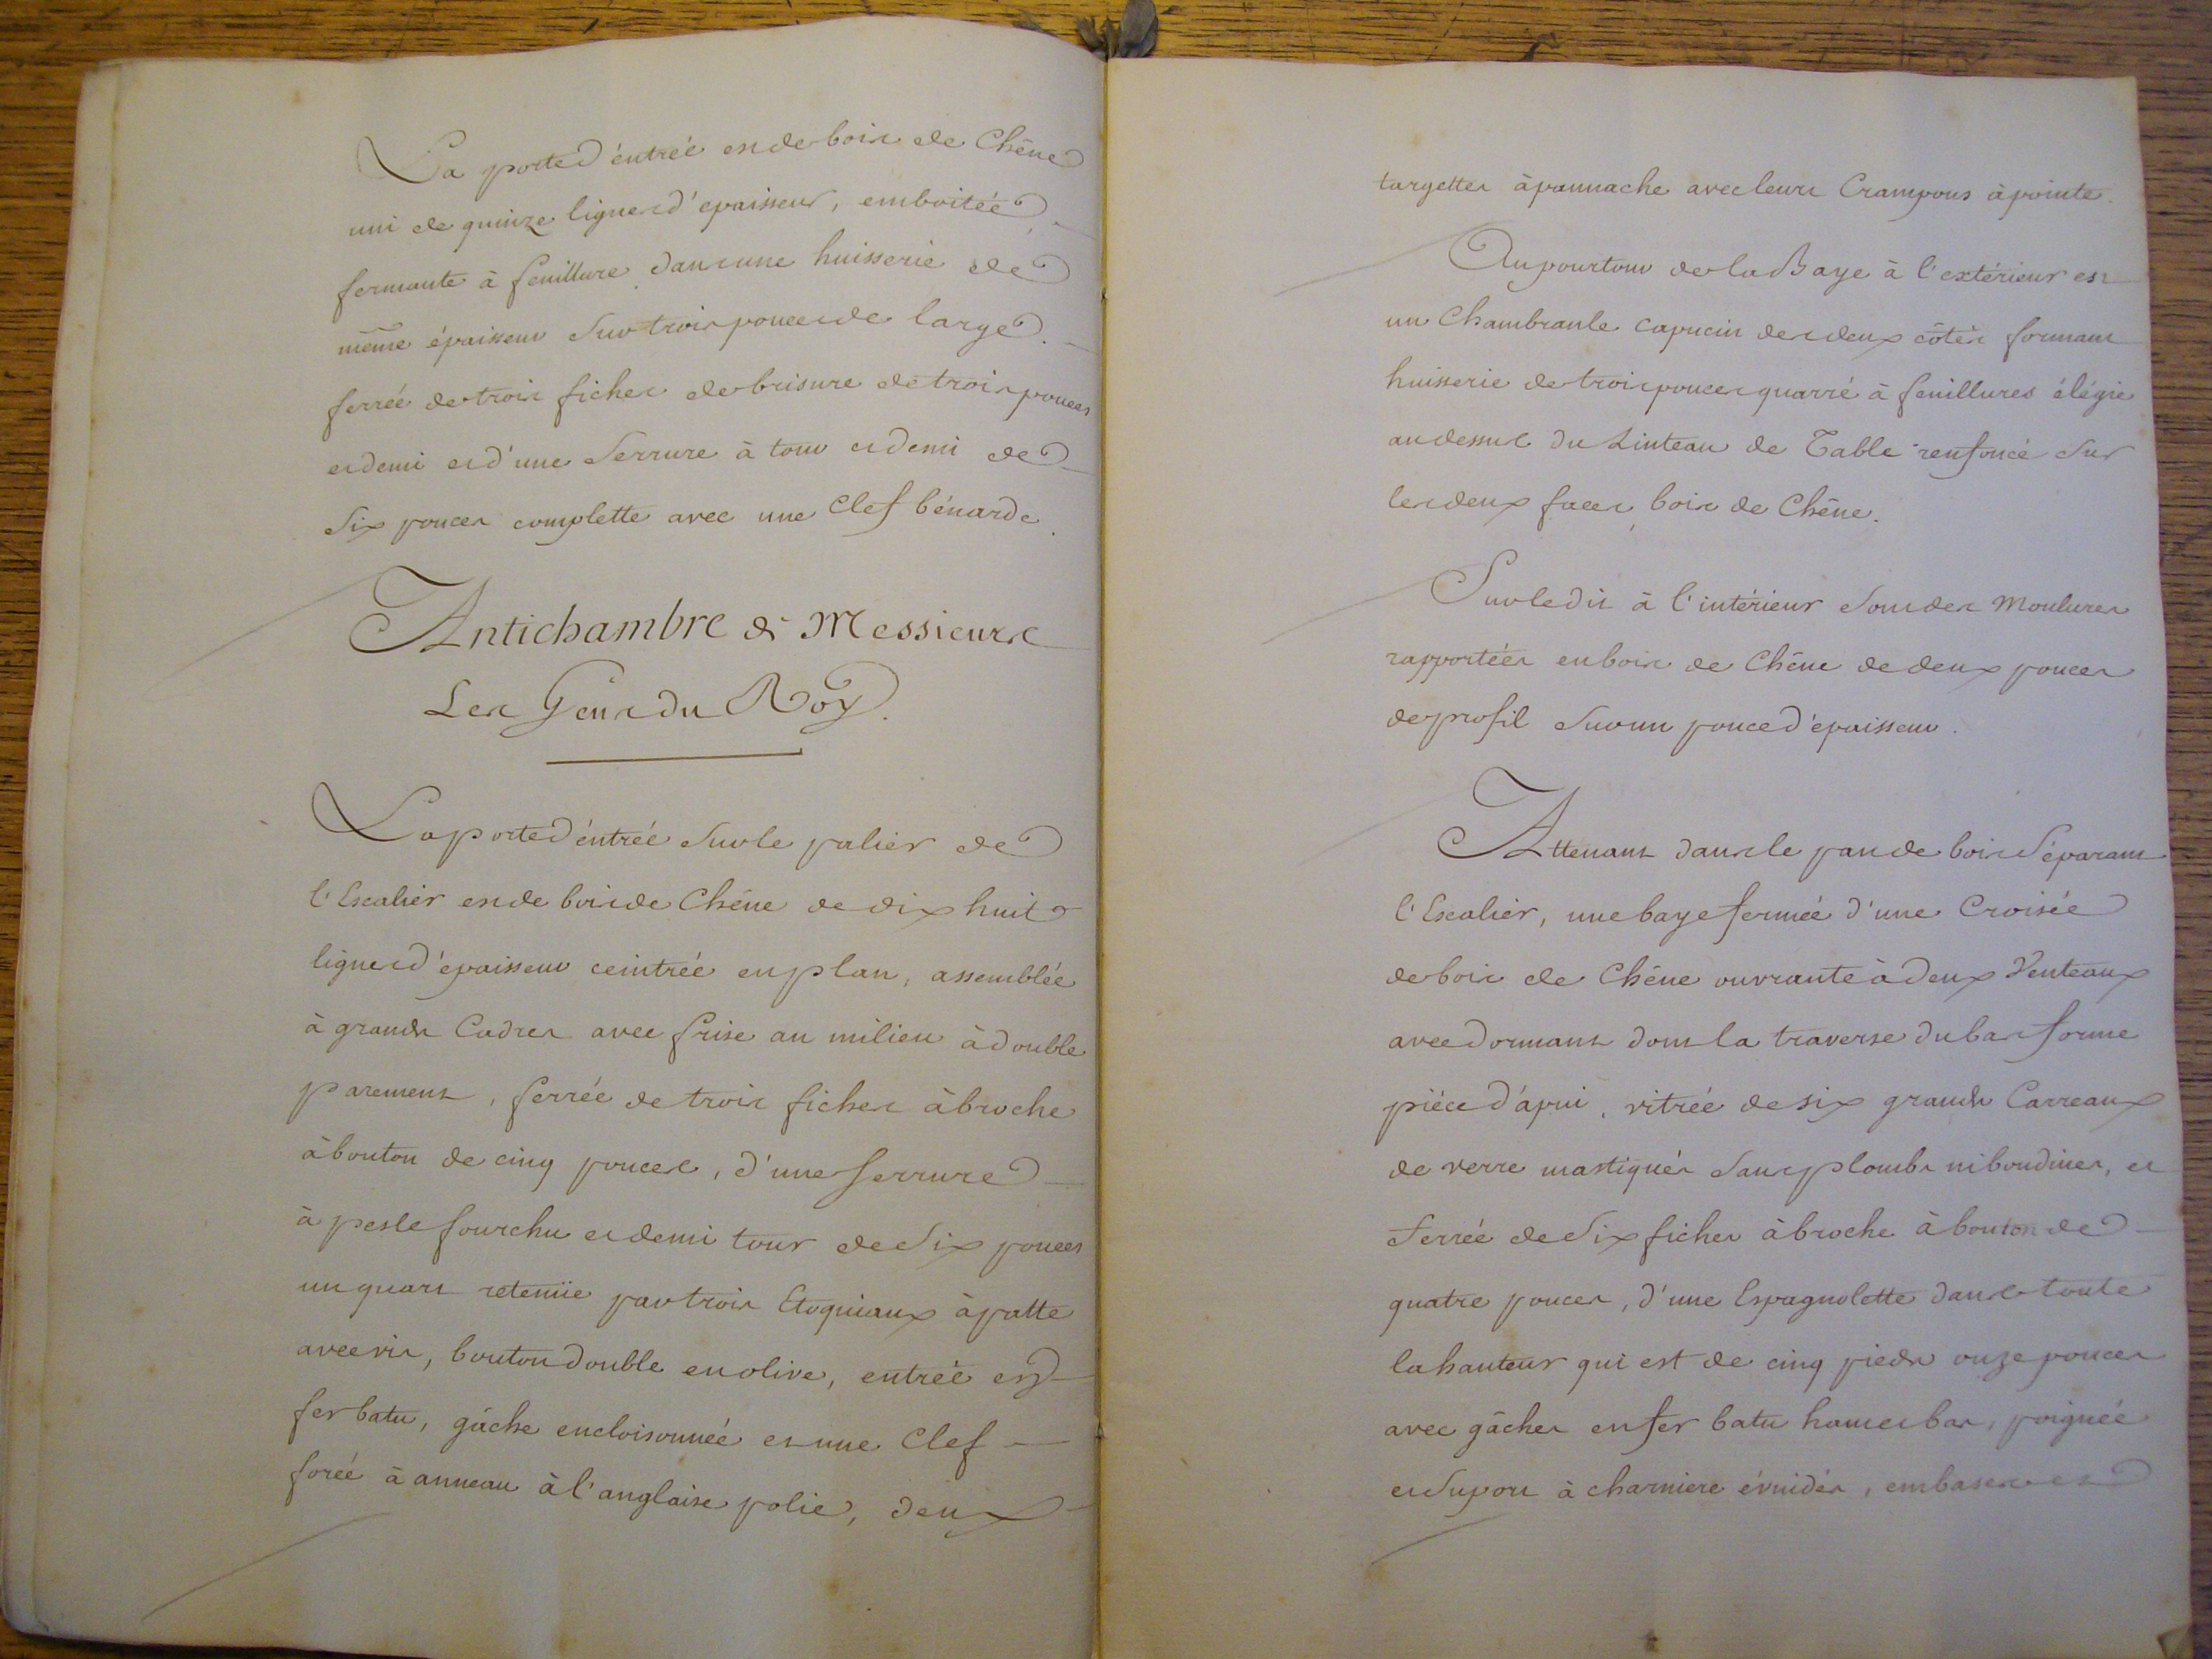 La porte d'éntrée est de bois de Chêne
uni de quinze lignes d'epaisseur, emboitée
fermante à feuillure dans une huisserie de
même épaisseur Sur trois pouces de large.
ferrée de trois fiches de brisure de trois pouces
et demi et d'une Serrure à tour et demi de
Six pouces complette avec une Clef bénarde.
Antichambre de Messieurs
Les Gens du Roy.
La porte d'éntrée Sur le palier de
l'Escalier est de bois de Chêne de dix huit
lignes d'épaisseur ceintrée en plan, assemblée
à grands Cadres avec frise au milieu à double
parement, ferrée de trois fiches à broche
à bouton de cinq pouces, d'une Serrure
à pesle fourchu et demi tour de Six pouces
un quart retenüe par trois Etoquiaux à patte
avec vis, bouton double en olive, entrée en
fer batu, gâche encloisonnée et une Clef
forée à anneau à l'anglaise polie, deux
targettes à pannache avec leurs Crampons à pointe.
Au pourtour de la Baye à l'extérieur est
un Chambranle capucin des deux côtés formant
huisserie de trois pouces quarré à feuillures élégie
au dessus du Linteau de Table renfoncé Sur
les deux faces, bois de Chêne.
Sur le dit à l'intérieur Sont des Moulures
rapportées en bois de Chêne de deux pouces
de profil Sur un pouce d'épaisseur.
Attenant dans le pan de bois Séparant
l'Escalier, une baye fermée d'une Croisée
de bois de Chêne ouvrante à deux Venteaux
avec dormant dont la traverse du bas forme
piéce d'apui, vitrée de six grands Carreaux
de verre mastiqués Sans plombs ni boudines, et
ferrée de Six fiches à broche à bouton de
quatre pouces, d'une Espagnolette dans toute
la hauteur qui est de cinq pieds onze pouces
avec gâches en fer batu haut et bas, poignée
et Suport à charniere évuidés, embases et